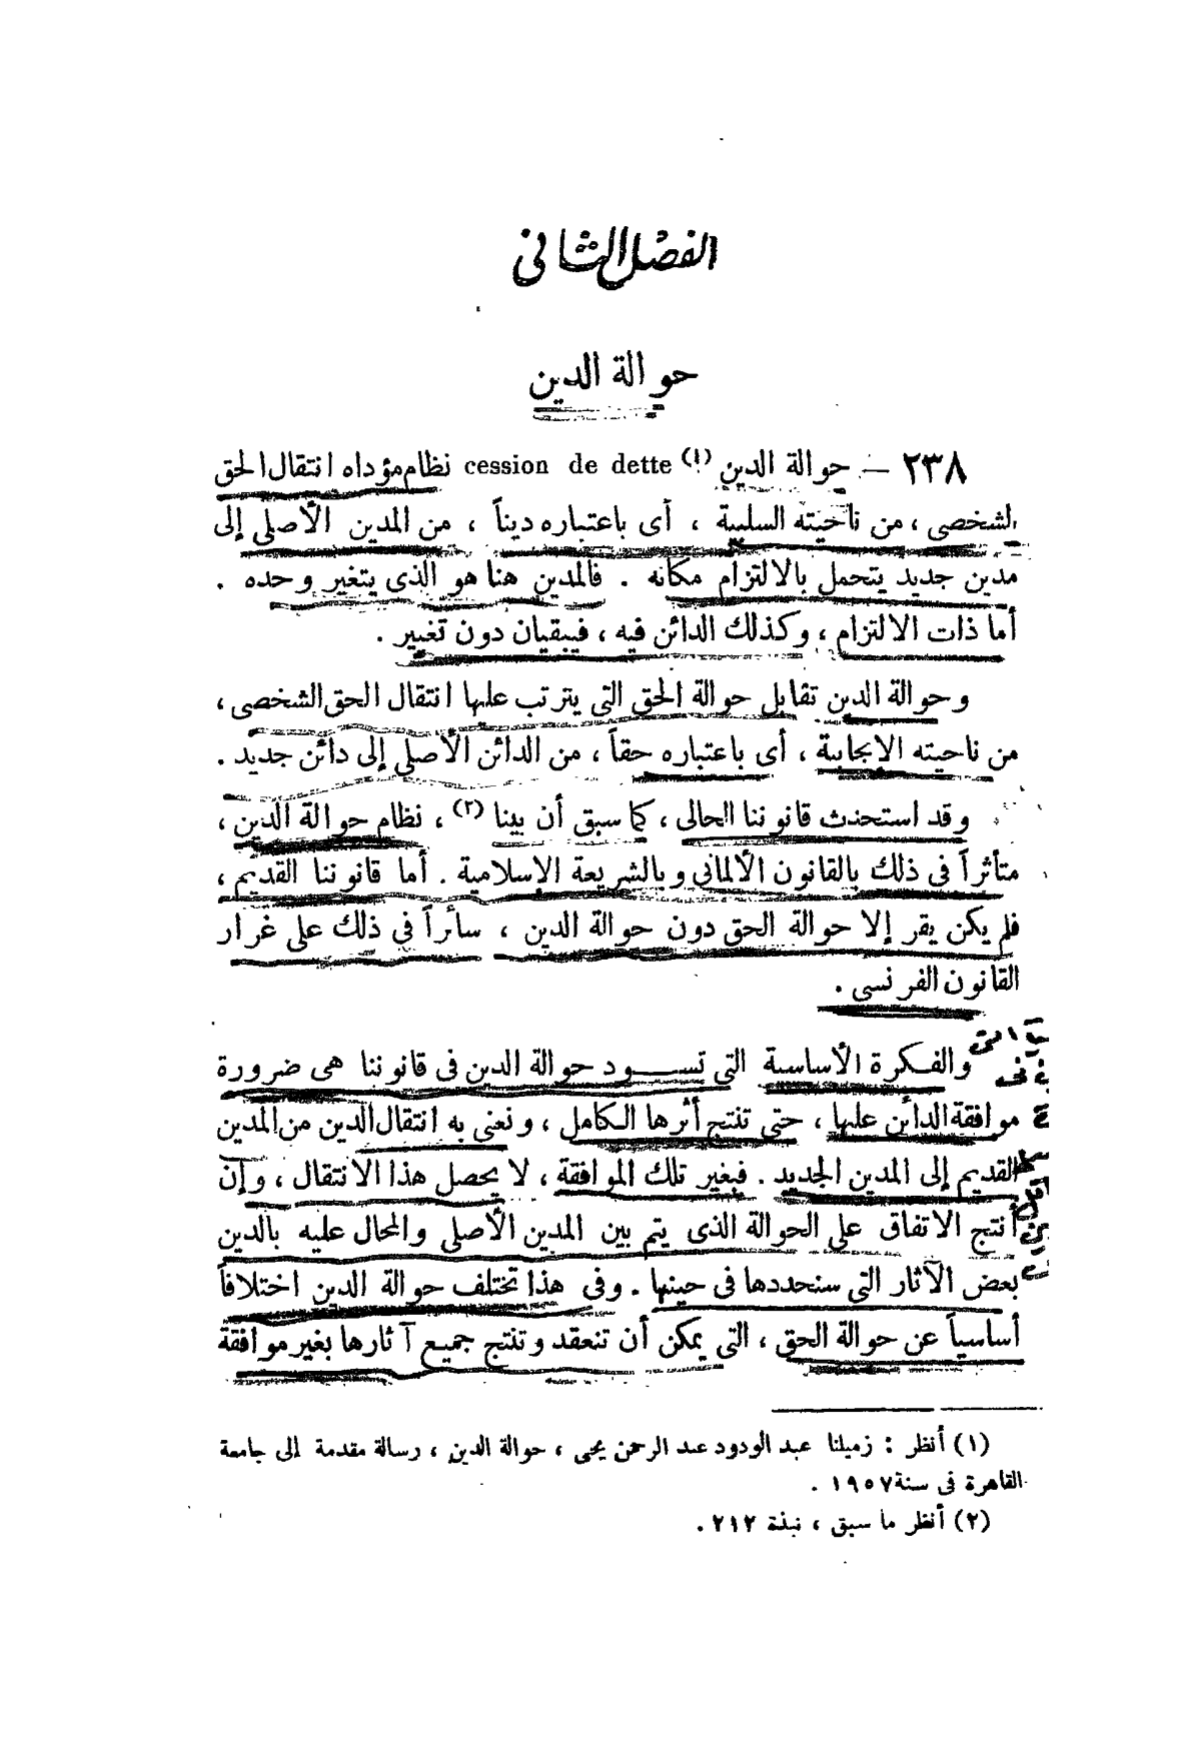 الفصل الثانى
حوالة الدين
٢٣٨ — حوالة الدين (١) cession de dette نظام مؤداه انتقال الحق
الشخصى ، من ناحيته السلبية ، أى باعتباره ديناً ، من المدين الأصلى إلى
مدين جديد يتحمل بالالتزام مكانه . فالمدين هنا هو الذى يتغير وحده .
أما ذات الالتزام ، وكذلك الدائن فيه ، فيبقيان دون تغيير .
وحوالة الدين تقابل حوالة الحق التى يترتب عليها انتقال الحق الشخصى ،
من ناحيته الإيجابية ، أى باعتباره حقاً ، من الدائن الأصلى إلى دائن جديد .
وقد استحدث قانوننا الحالى ، كما سبق أن بينا (٢) ، نظام حوالة الدين ،
متأثراً فى ذلك بالقانون الألمانى وبالشريعة الإسلامية . أما قانوننا القديم ،
فلم يكن يقر إلا حوالة الحق دون حوالة الدين ، سائراً فى ذلك على غرار
القانون الفرنسى .
والفكرة الأساسية التى تسود حوالة الدين فى قانوننا هى ضرورة
موافقة الدائن عليها ، حتى تنتج أثرها الكامل ، ونعنى به انتقال الدين من المدين
القديم إلى المدين الجديد . فبغير تلك الموافقة ، لا يحصل هذا الانتقال ، وإن
أنتج الاتفاق على الحوالة الذى يتم بين المدين الأصلى والمحال عليه بالدين
بعض الآثار التى سنحددها فى حينها . وفى هذا تختلف حوالة الدين اختلافاً
أساسياً عن حوالة الحق ، التى يمكن أن تنعقد وتنتج جميع آثارها بغير موافقة
(١) أنظر : زميلنا عبد الودود عبد الرحمن يحيى ، حوالة الدين ، رسالة مقدمة إلى جامعة
القاهرة فى سنة ١٩٥٧ .
(٢) أنظر ما سبق ، نبذة ٢١٢ .